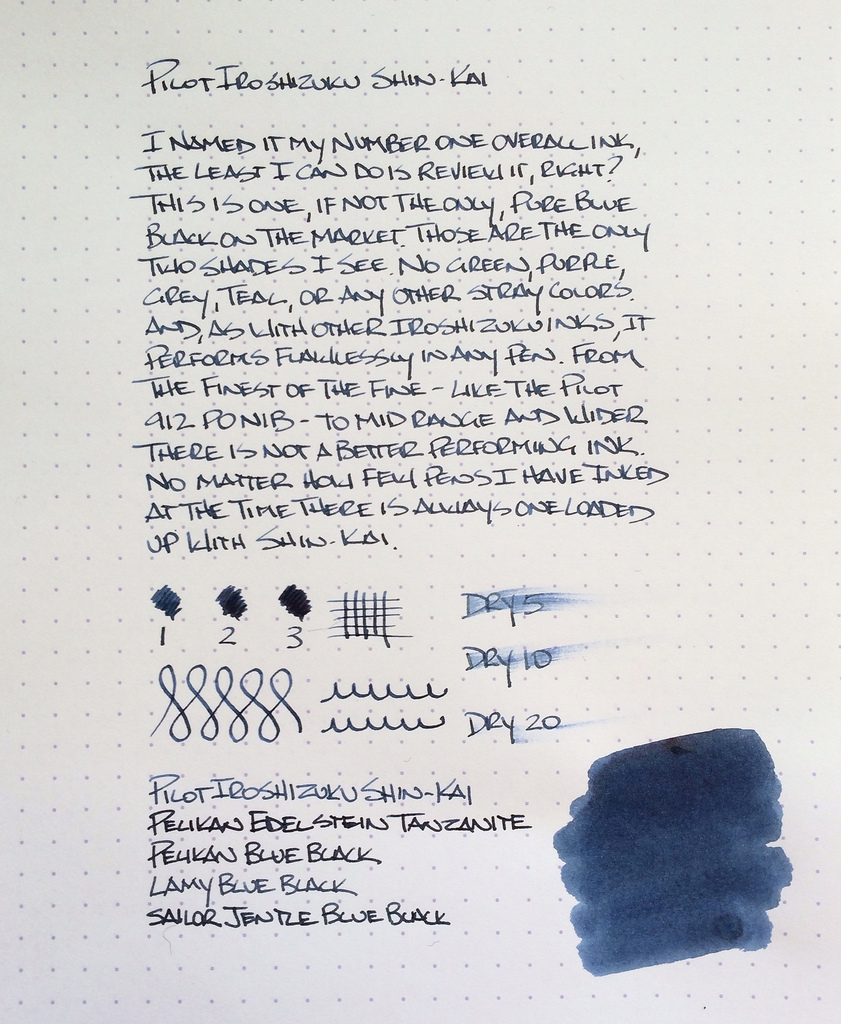 PILOT IROSHIZUKU SHIN-KAI
I NAMED IT MY NUMBER ONE OVERALL INK,
THE LEAST I CAN DO IS REVIEW IT, RIGHT?
THIS IS ONE, IF NOT THE ONLY, PURE BLUE
BLACK ON THE MARKET. THOSE ARE THE ONLY
TWO SHADES I SEE. NO GREEN, PURPLE,
GREY, TEAL, OR ANY OTHER STRAY COLORS.
AND, AS WITH OTHER IROSHIZUKU INKS, IT
PERFORMS FLAWLESSLY IN ANY PEN. FROM
THE FINEST OF THE FINE - LIKE THE PILOT
912 PO NIB - TO MID RANGE AND WIDER
THERE IS NOT A BETTER PERFORMING INK.
NO MATTER HOW FEW PENS I HAVE INKED
AT THE TIME THERE IS ALWAYS ONE LOADED
UP WITH SHIN-KAI.
1 2 3
DRY 5
DRY 10
DRY 20
PILOT IROSHIZUKU SHIN-KAI
PELIKAN EDELSTEIN TANZANITE
PELIKAN BLUE BLACK
LAMY BLUE BLACK
SAILOR JENTLE BLUE BLACK